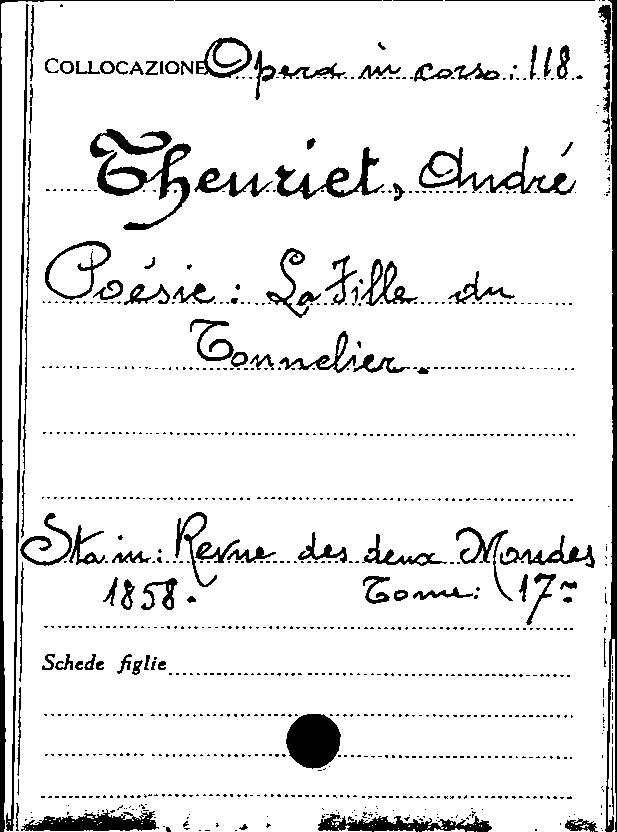 COLLOCAZIONE Opera in corso: 118.
Theuriet, André
Poésie: La Fille du
Tonnelier.
Sta in: Revue des deux Mondes
1858. Tome: 17º
Schede figlie